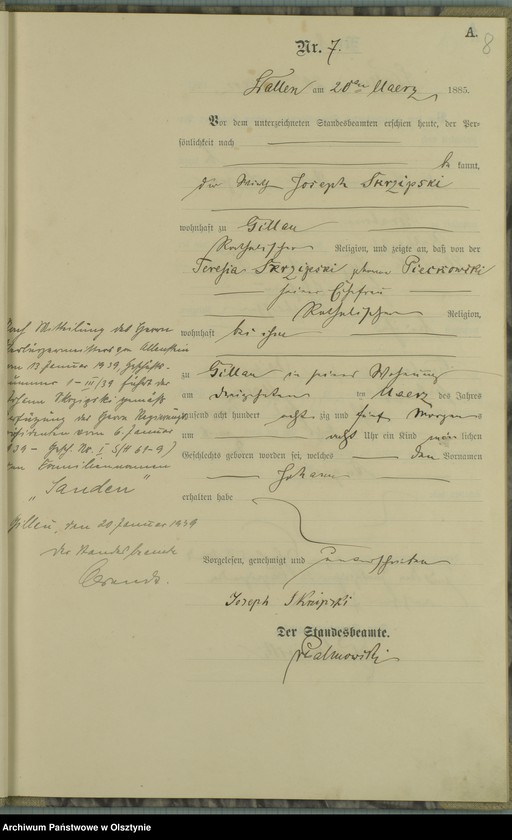 A.
8
Nr. 7.
Wallen am 20ten Maerz 1885.
Vor dem unterzeichneten Standesbeamten erschien heute, der Per-
sönlichkeit nach
be kannt,
der Wirth Joseph Skrzipski
wohnhaft zu Gillau
Katholischer Religion, und zeigte an, daß von der
Teresia Skrzipski geborene Pieckowski
seiner Ehefrau
Katholischer Religion,
wohnhaft bei ihm
zu Gillau in seiner Wohnung
am dreizehnten Maerz des Jahres
tausend acht hundert acht zig und fünf Morgens
um acht Uhr ein Kind männ lichen
Geschlechts geboren worden sei, welches den Vornamen
Johann
erhalten habe
Vorgelesen, genehmigt und unterschrieben
Joseph
Der Standesbeamte.
Palmowski
Nach Mittheilung des Herrn
Oberbürgermeisters zu Allenstein
vom 13 Januar 1939 Geschäfts-
nummer I-III/39 führt der
Johann gemäß
Verfügung des Herrn Regierungs-
präsidenten vom 6. Januar
1939 -
den Familiennamen
"Sanden"
Gillau, den 20 Januar 1939
Der Standesbeamte
Archiwum Państwowe w Olsztynie